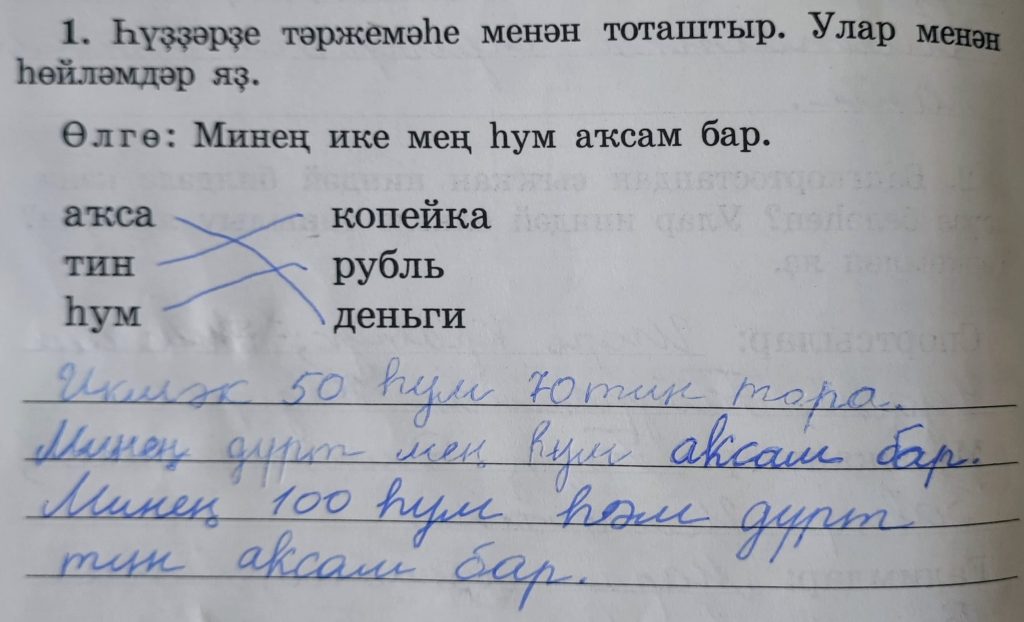 1. Һүҙҙәрҙе тәржемәһе менән тоташтыр. Улар менән
һөйләмдәр яҙ.
Өлгө: Минең ике мең һум аҡсам бар.
аҡса копейка
тин рубль
һум деньги
Икмәк 50 һум 70 тин тора.
Минең дурт мең һум аксам бар.
Минең 100 һум һәм дурт
тин аксам бар.